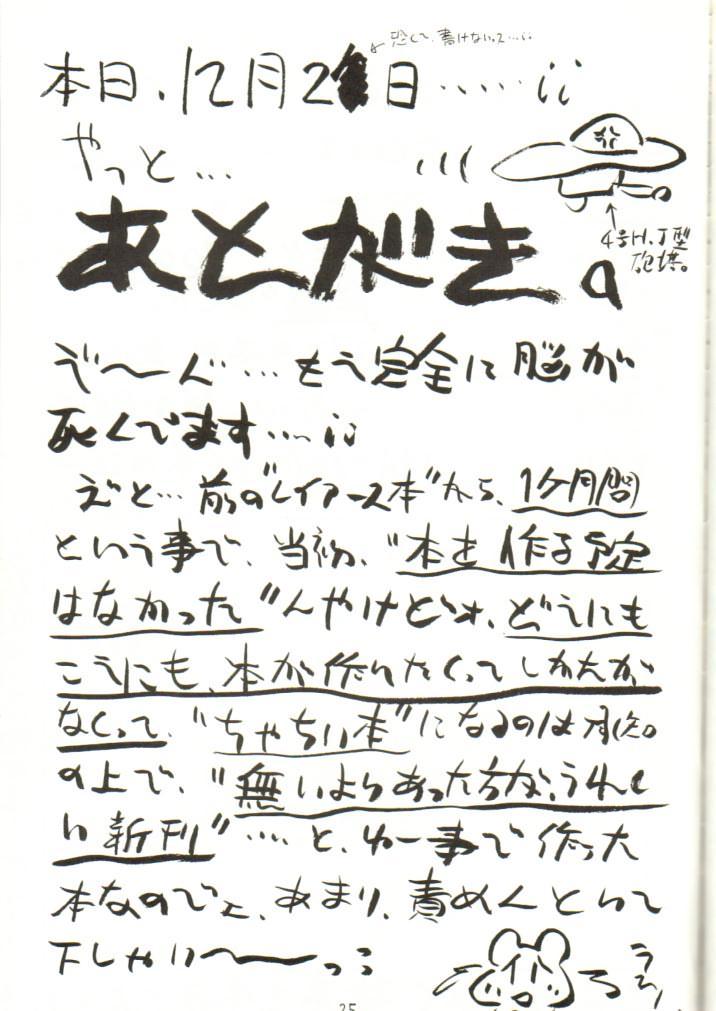 恐くて、書けないって…
本日、12月2日……
やっと…
あとがき。
4号H、J型
砲塔。
ぞ〜ん…もう完全に脳が
死んでます…
えと…前の"レイアース本"から、1ヶ月間
という事で、当初、"本を作る予定
はなかった"んやけどォ、どうにも
こうにも、本が作りたくってしかたが
なくって、"ちゃちい本"になるのは承知。
の上で、"無いよりあった方が、うれし
い新刊"…と、ゆー事で作った
本なのでェ、あまり、責めんといて
下しゃい〜っ
25